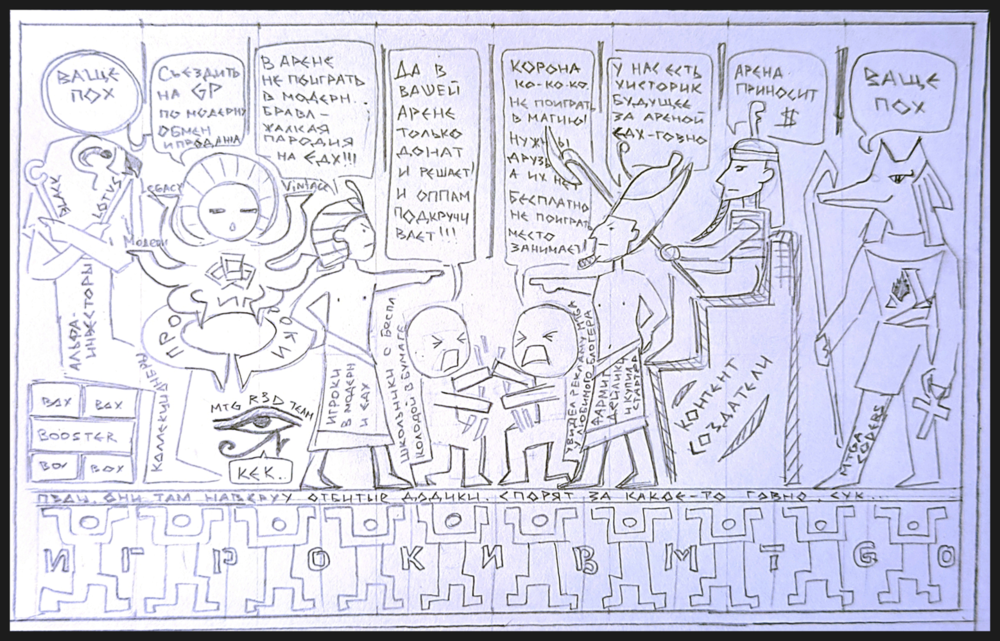 ВАЩЕ
ПОХ
СЪЕЗДИТЬ
НА GP
ПО МОДЕРНУ
ОБМЕН
И ПРОДАЖА
В АРЕНЕ
НЕ ПОИГРАТЬ
В МОДЕРН.
БРАВЛ –
ЖАЛКАЯ
ПАРОДИЯ
НА ЕДХ!!!
ДА В
ВАШЕЙ
АРЕНЕ
ТОЛЬКО
ДОНАТ
И РЕШАЕТ!
И ОППАМ
ПОДКРУЧИ
ВАЕТ!!!
КОРОНА
КО-КО-КО.
НЕ ПОИГРАТЬ
В МАГИЮ!
НУЖНЫ
ДРУЗЬЯ
А ИХ НЕТ
БЕСПЛАТНО
НЕ ПОИГРАТЬ
МЕСТО
ЗАНИМАЕТ!
У НАС ЕСТЬ
ХИСТОРИК
БУДУЩЕЕ
ЗА АРЕНОЙ
ЕДХ-ГОВНО
АРЕНА
ПРИНОСИТ
$
ВАЩЕ
ПОХ
BLACK
LOTUS
LEGACY
VINTAGE
МОДЕРН
АЛЬФА-
ИНВЕСТОРЫ
ПРО
ИГ
РОКИ
КОЛЛЕКЦИОНЕРЫ
BOX
BOX
BOOSTER
BOX
BOX
MTG R&D TEAM
КЕК..
ИГРОКИ
В МОДЕРН
И ЕДХ
ШКОЛЬНИКИ С БЕСПЛ
КОЛОДОЙ В БУМАГЕ
УВИДЕЛ РЕКЛАМУ МТГА
У ЛЮБИМОГО БЛОГЕРА
ФАРМИТ
ДЕЙЛИКИ
И КУПИЛ
СТАРТЕР
КОНТЕНТ
СОЗДАТЕЛИ
MTGA
CODERS
ПЗДЦ, ОНИ ТАМ НАВЕРХУ ОТБИТЫЕ ДОДИКИ. СПОРЯТ ЗА КАКОЕ-ТО ГОВНО, СУК...
ИГРОКИ В MTGO